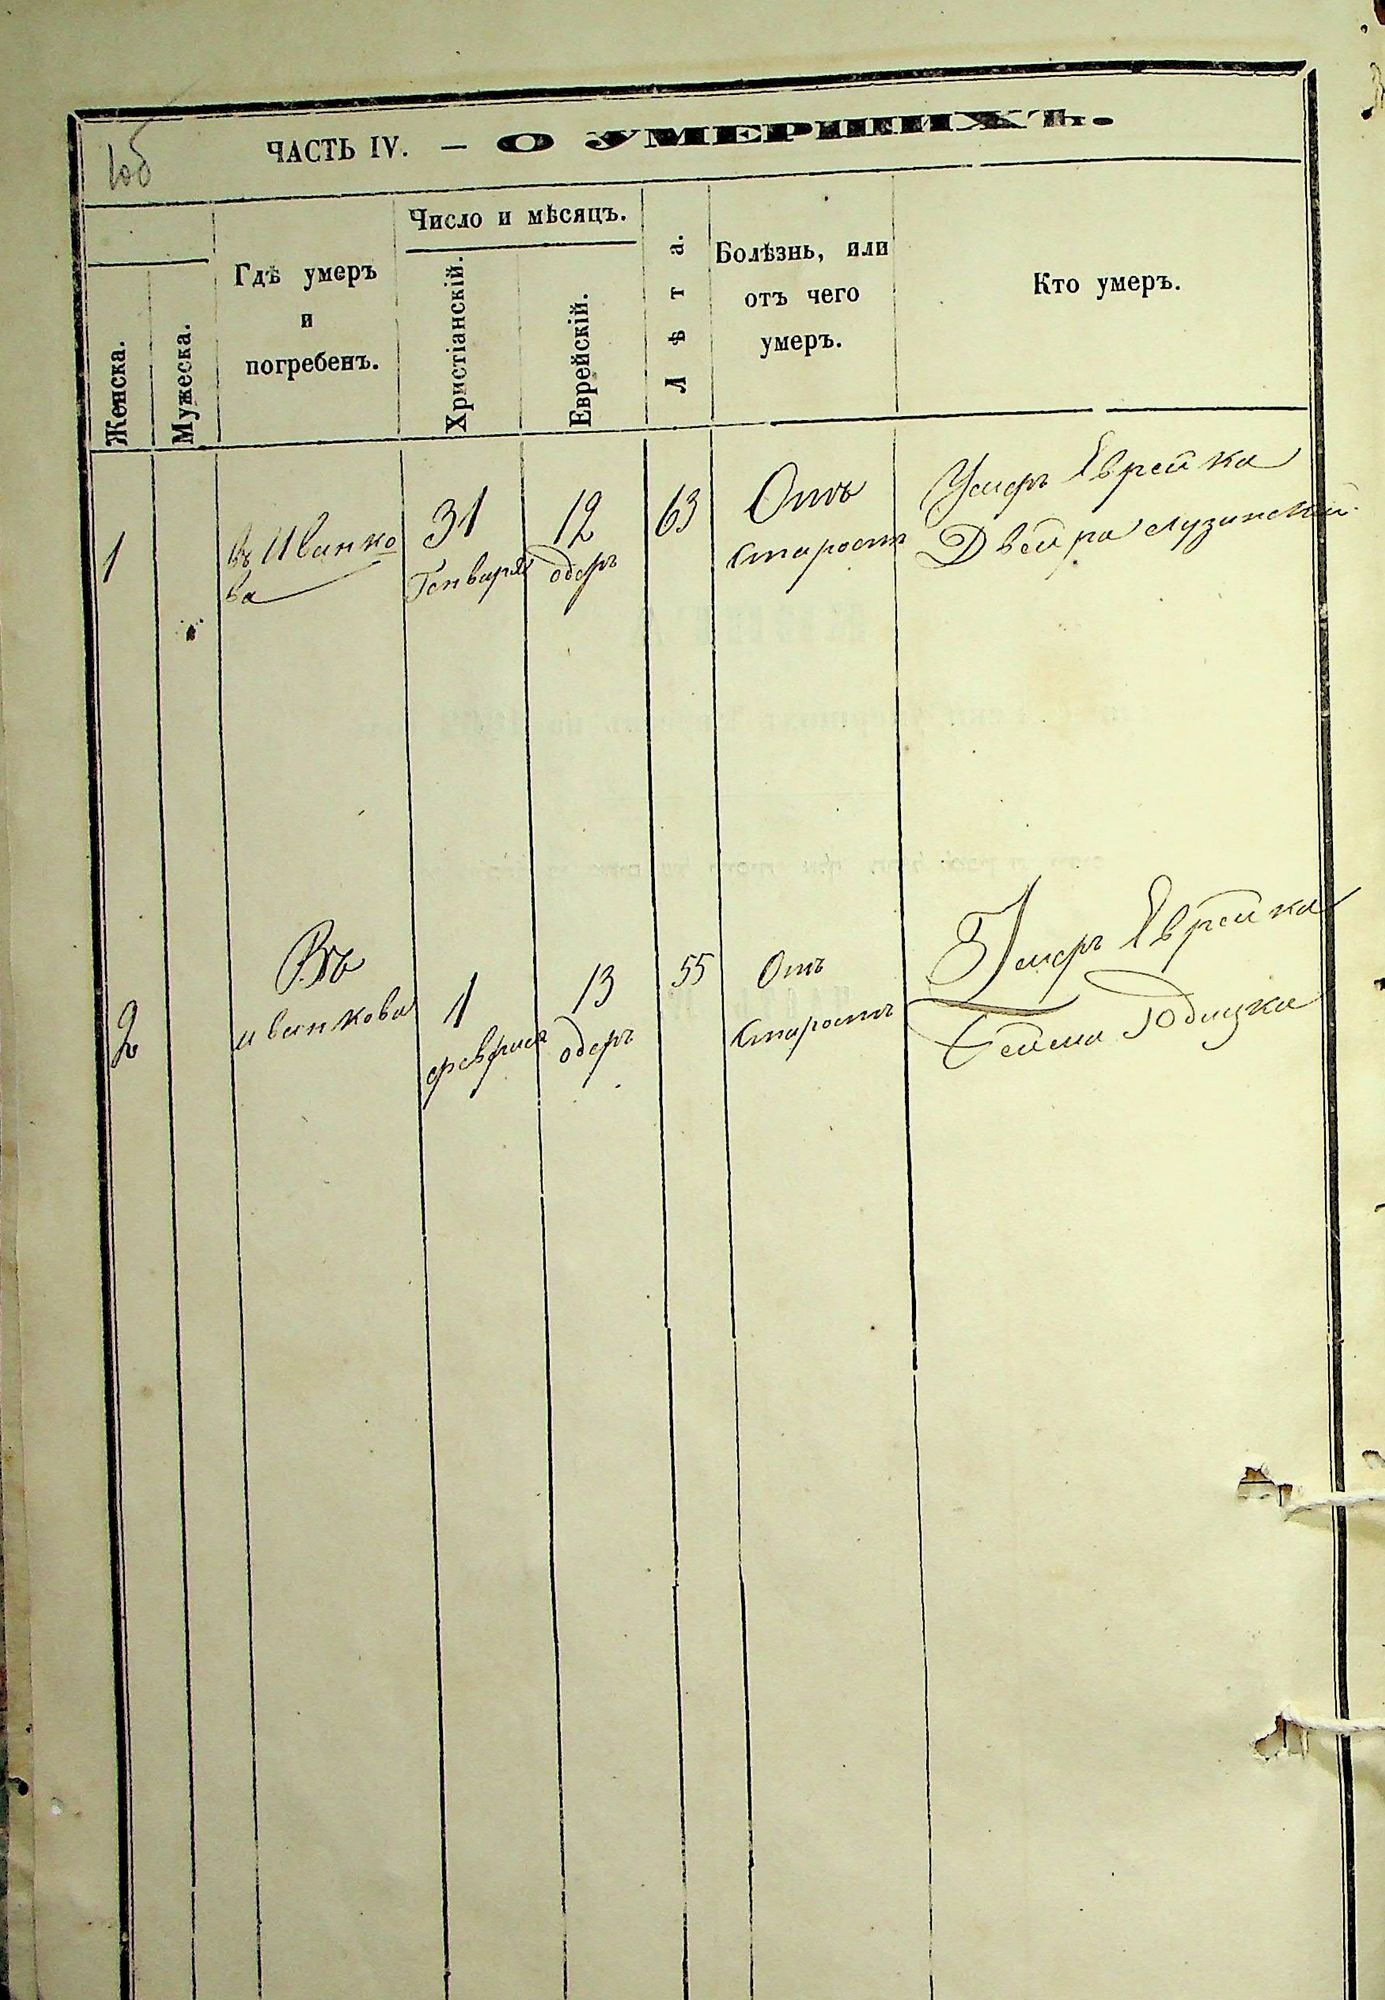 10б
ЧАСТЬ IV. — О УМЕРШИХЪ.
Женска.
Мужеска.
Гдѣ умеръ
и
погребенъ.
Число и мѣсяцъ.
Христіанскій.
Еврейскій.
Лѣта.
Болѣзнь, или
отъ чего
умеръ.
Кто умеръ.
1
въ Иванко
ва
31
Генваря
12
адеръ
63
Отъ
старост
Умеръ Еврейка
Двейра Лузинская
2
Въ
иванкова
1
февраля
13
адеръ
55
Отъ
старость
Умеръ Еврейка